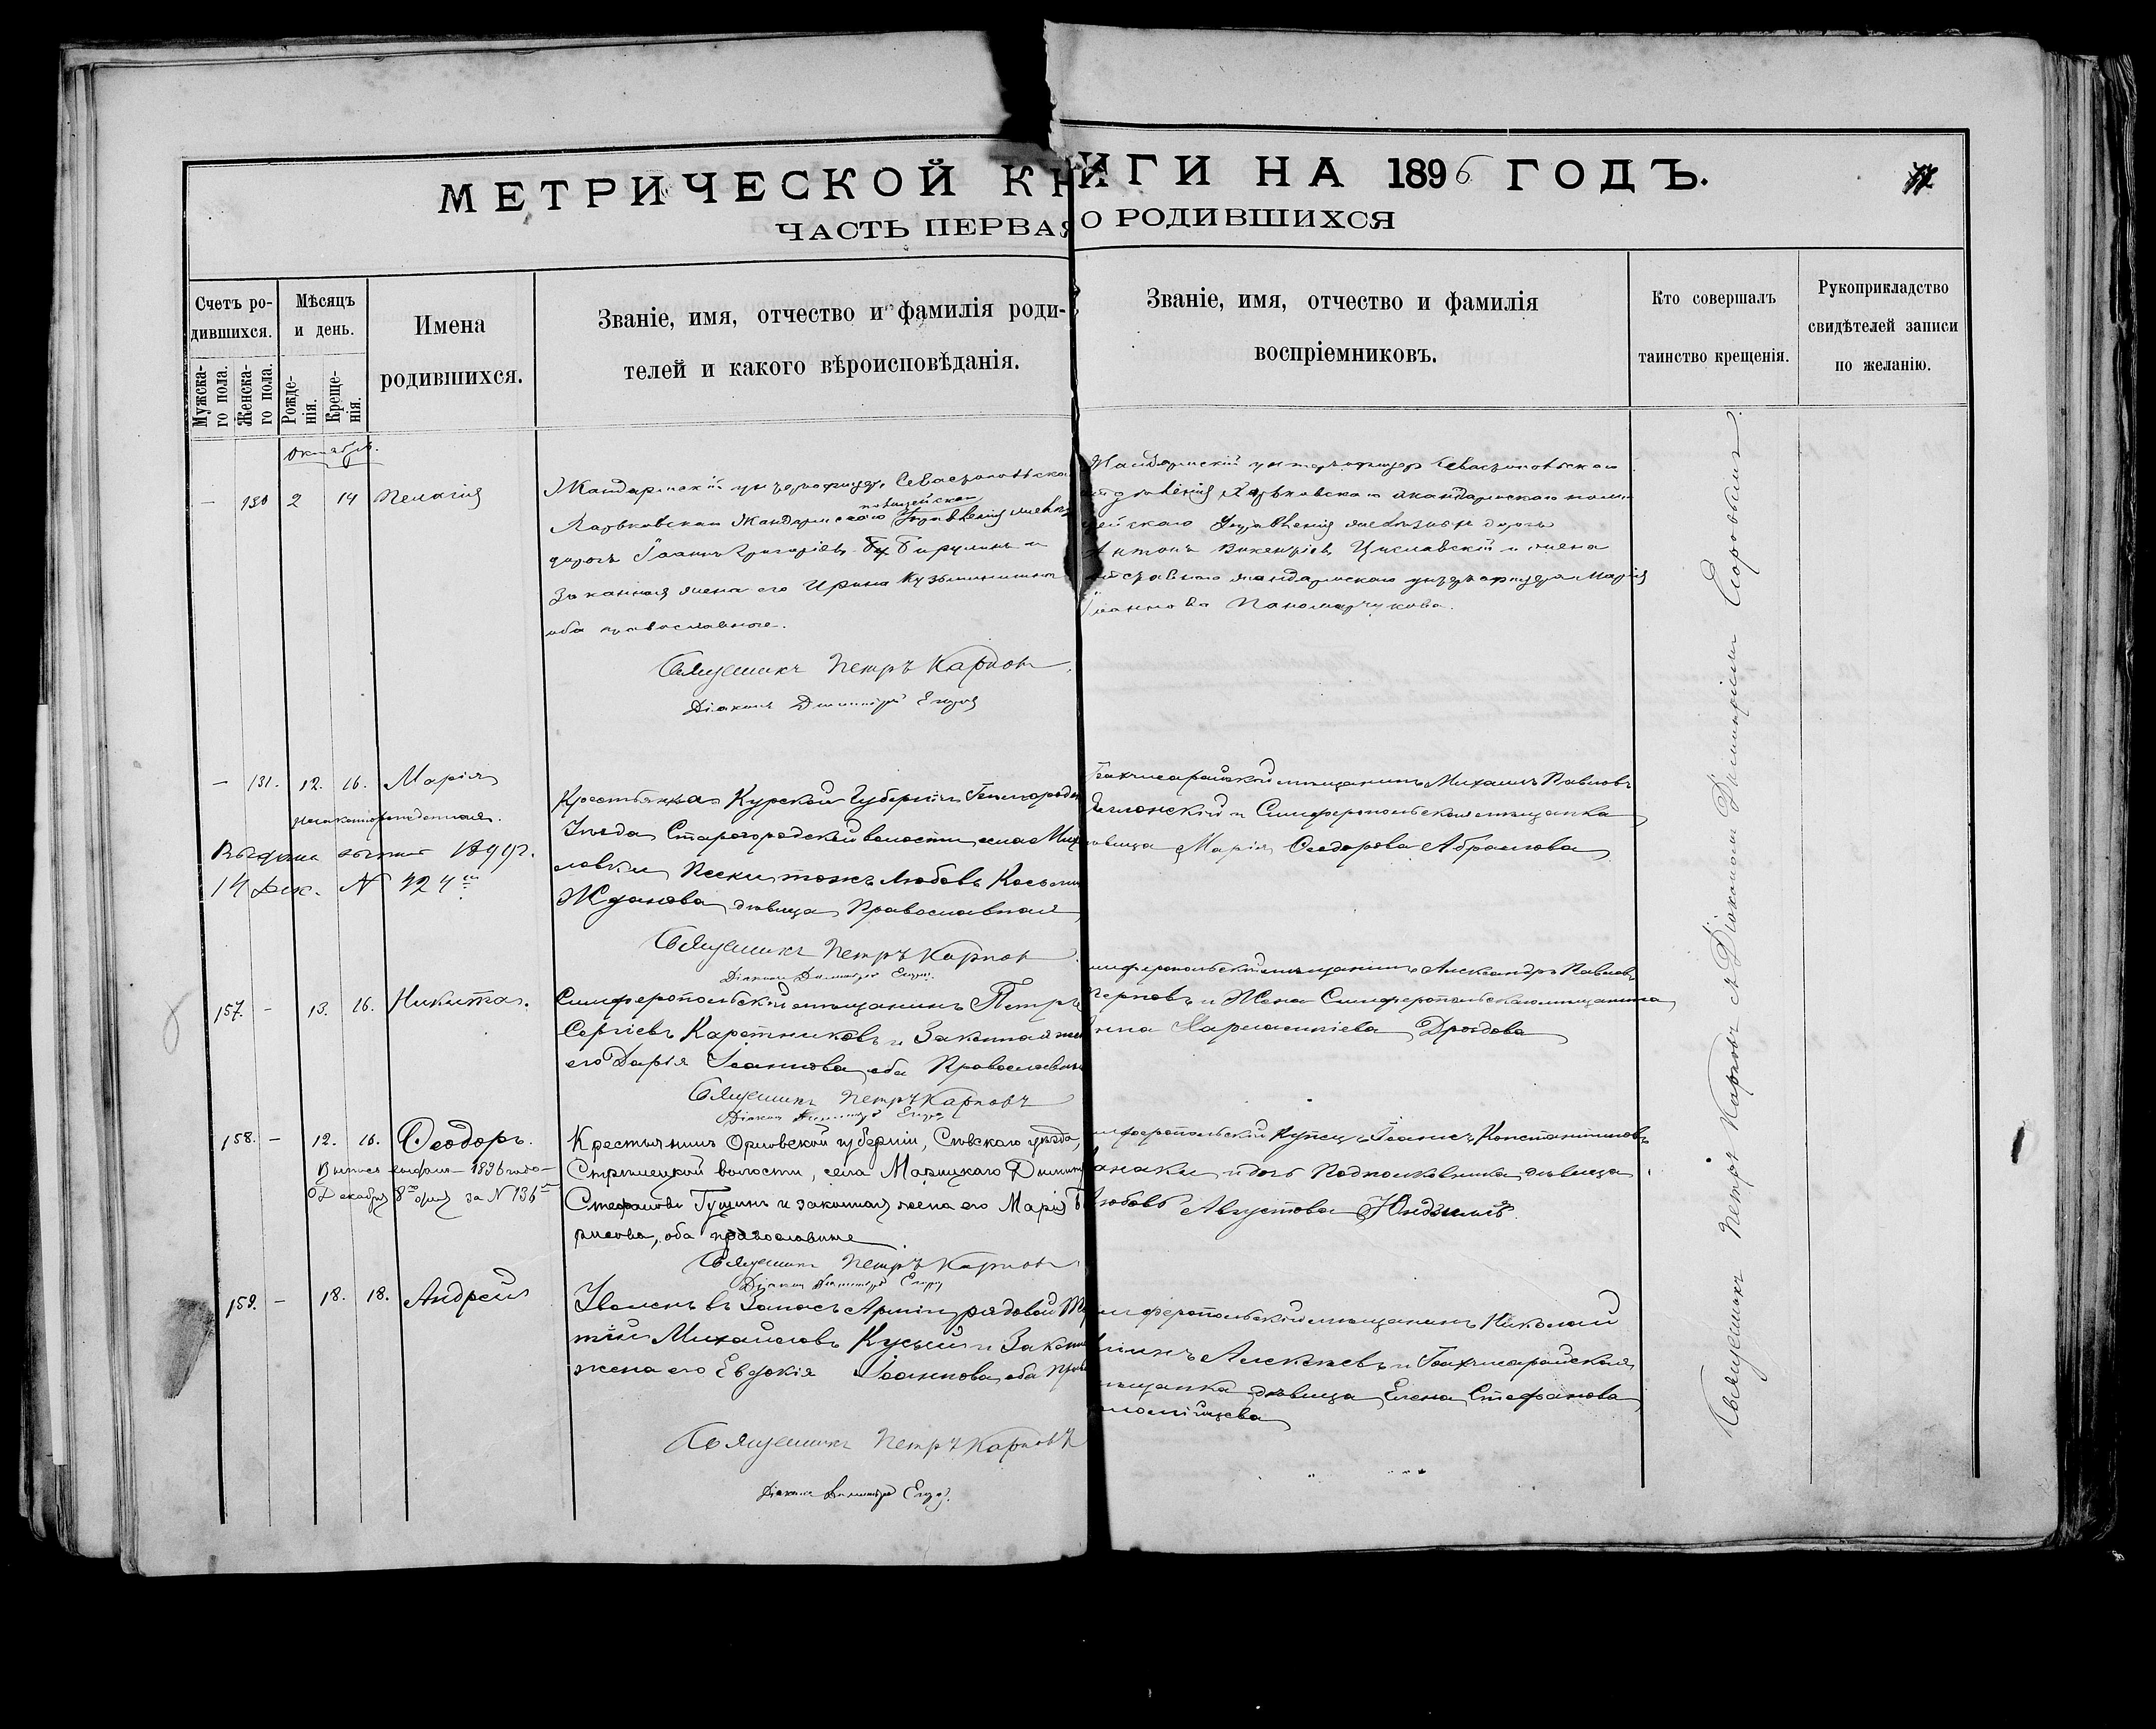 МЕТРИЧЕСКОЙ КНИГИ НА 1896 ГОДЪ.
ЧАСТЬ ПЕРВАЯ О РОДИВШИХСЯ
Счетъ ро-
дившихся.
Мужска-
го пола.
Женска-
го пола.
Мѣсяцъ
и день.
Рожде-
нія.
Креще-
нія.
Имена
родившихся.
Званіе, имя, отчество и фамилія роди-
телей и какого вѣроисповѣданія.
Званіе, имя, отчество и фамилія
воспріемниковъ.
Кто совершалъ
таинство крещенія.
Рукоприкладство
свидѣтелей записи
по желанію.
Октябрь.
— 130 2 14 Пелагія
Жандармскій унтерофицеръ Севастопольска
полицейскаго
Харьковскаго Жандармскаго Управленія
дорогъ Іоаннъ Григоріевъ и
законная жена его Ирина
оба православные.
Священникъ Петръ Карповъ
Діаконъ Димитрій
Жандармскій унтерофицеръ Севастопольскаго
отдѣленія Харьковскаго жандармскаго поли
цейскаго Управленія желѣзныхъ дорогъ
Антонъ Викентіевъ и жена
жандармскаго унтерофицера Марія
Іоаннова
— 131. 12. 16. Марія
незаконнорожденная.
14 Дек. N 424
Крестьянка Курской Губерніи
Уѣзда Старогородской волости села
Пески тожъ Любовь
Жданова дѣвица Православная
Священникъ Петръ Карповъ
Діаконъ Димитрій
Бахчисарайскій мѣщанинъ Михаилъ Павловъ
и Симферопольская мѣщанка
дѣвица Марія Ѳеодорова Абрамова
157. — 13. 16. Никита.
Симферопольскій мѣщанинъ Петръ
Сергіевъ Каретниковъ и Законная жен
его Дарія Іоаннова оба Православны
Священникъ Петръ Карповъ
Діаконъ Димитрій
имферопольскій мѣщанинъ Александръ Павловъ
и Жена Симферопольскаго мѣщанина
Анна Дроздова
158. — 12. 16. Ѳеодоръ.
Выпись выдана 1896 года
Декабря 8го дня за N 136
Крестьянинъ Орловской губерніи, Сѣвскаго уѣзда,
Стрѣлецкой волости, села Марицкаго Димит
Стефановъ Гущинъ и законная жена его Марія
рисова, оба православные
Священникъ Петръ Карповъ
Діаконъ Димитрій
имферопольскій Купецъ Іоаннъ Константиновъ
и дочь Подполковника дѣвица
Любовь Августова
159. — 18. 18. Андрей
Уволенъ въ Запасъ Арміи рядовой
Михайловъ и Законн
жена его Евдокія Іоаннова оба Прав
Священникъ Петръ Карповъ
Діаконъ Димитрій
имферопольскій мѣщанинъ Николай
Алексѣевъ и Бахчисарайская
мѣщанка дѣвица Елена Стефанова
Священникъ Петръ Карповъ съ Діакономъ Димитріемъ